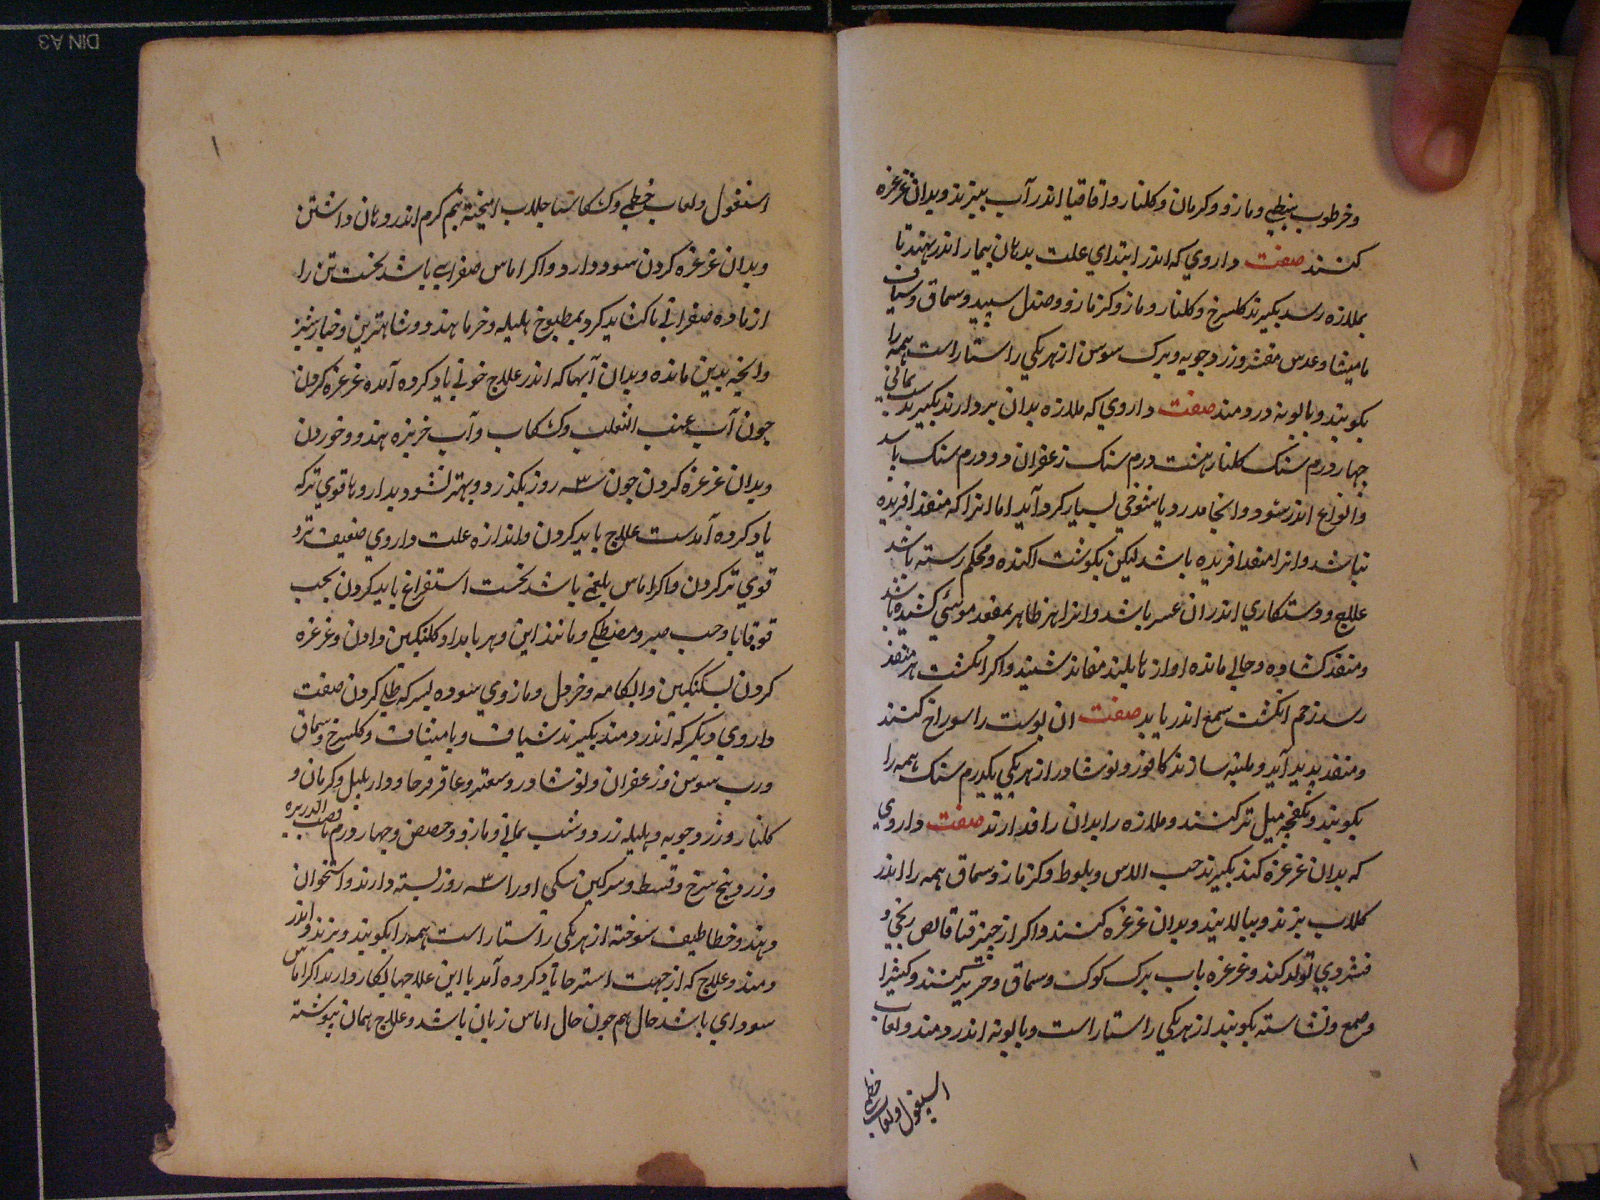 و خرطوب نبطی و مازو و کرمان و کلنار و اقاقیا اندر آب بپزند و بدان غرغره
کنند صفت داروی که اندر ابتدای علت بدهان بیمار اندر نهند تا
بملازه رسد بکیرند کلسرخ و کلنار و مازو و کزمازو و صندل سپید و سماق و شیاف
مامیثا و عدس مقشر و زردجوبه و برک سوسن از هر یکی راستاراست همه را
بکوبند و بالونه در دمند صفت داروی که ملازه بدان بردارند بکیرند شب یمانی
جهار درم سنک کلنار هشت درم سنک زعفران دو درم سنک
و انواع اندر شود و انجا مدر و یا شوخی بسیار کرد آید اما انرا که منفذ افریده
نباشد و انرا منفذ افریده باشد لیکن بکوشت اکنده و محکم رسته باشد
علاج و دستکاری اندر ان عسر باشد و انرا بر ظاهر بمقدار موئی کشیده باشد
و منفذ کشاده و خالی مانده اواز ها بلند شنید و اکر انکشت بر منفذ
رسد زخم انکشت سمع اندر یابد صفت ان پوست را سوراخ کنند
و منفذ پدید آید و ملیته سازند کافور و نوشادر از هر یکی یکدرم سنک همه را
بکوبند و بکفجه میل تر کنند و ملازه را بدان را فدارند صفت داروی
که بدان غرغره کند بکیرند حب الاس و بلوط و کزمازو سماق همه را اندر
کلاب بپزند و بپالایند و بدان غرغره کنند و اکر از جیز
تولد کند و غرغره باب برک کوک و سماق و کنند و کثیرا
و صمع و نشاسته بکوبند از هر یکی راستاراست و بالونه اندر دمند و لعاب
اسپغول و لعاب خطمی
اسپغول و لعاب خطمی و کشکاب با جلاب امیخته نیم کرم اندر دهان داشتن
و بدان غرغره کردن سود دارد و اکر اماس صفرایی باشد نخست تن را
از ماده صفرائی پاک شاید کرد بمطبوخ هلیله و خرما هندو و شاهترین و خیارشنبر
و انجه بدین مانده و بدان آبها که اندر علاج خونی یاد کرده آمده غرغره کردن
جون آب عنب الثعلب و کشکاب و آب خربزه هندو و خوردن
و بدان غرغره کردن جون سه روز بکذرد و بهتر نشود بداروها قوی ترکه
یاد کرده آمدست علاج باید کردن و اندازه علت داروی ضعیف تر و
قوی تر کردن و اکر اماس بلغمی باشد نخست استفراغ باید کردن بحب
قوقایا و حب صبر و مصطکی و مانند این و هر بامداد کلنکبین دادن و غرغره
کردن بسکنکبین و ابکامه و خردل و مازوی سوده بسرکه طلی کردن صفت
داروی دیکر که اندر دمند بکیرند شیاف و یا میثاف و کلسرخ و سماق
و رب سوس و زعفران و نوشادر و سعتر و عاقرقرحا و دارپلپل و کرمان و
کلنار و زردجوبه و هلیله زرد و شب یمانی و مازو و حصص و جهار درم قصب الذریره
و زرنیخ سرخ و قسط و سرکین سکی او را سه روز بسته دارند و استخوان
دهند و خطاطیف سوخته از هر یکی راستاراست همه را بکوبند و بپزند و اندر
دمند و علاج که از جهت استرخا یاد کرده آمد با این علاجها بکار دارند اکر اماس
سودای باشد حال هم جون حال اماس زبان باشد و علاج همان نبوشته